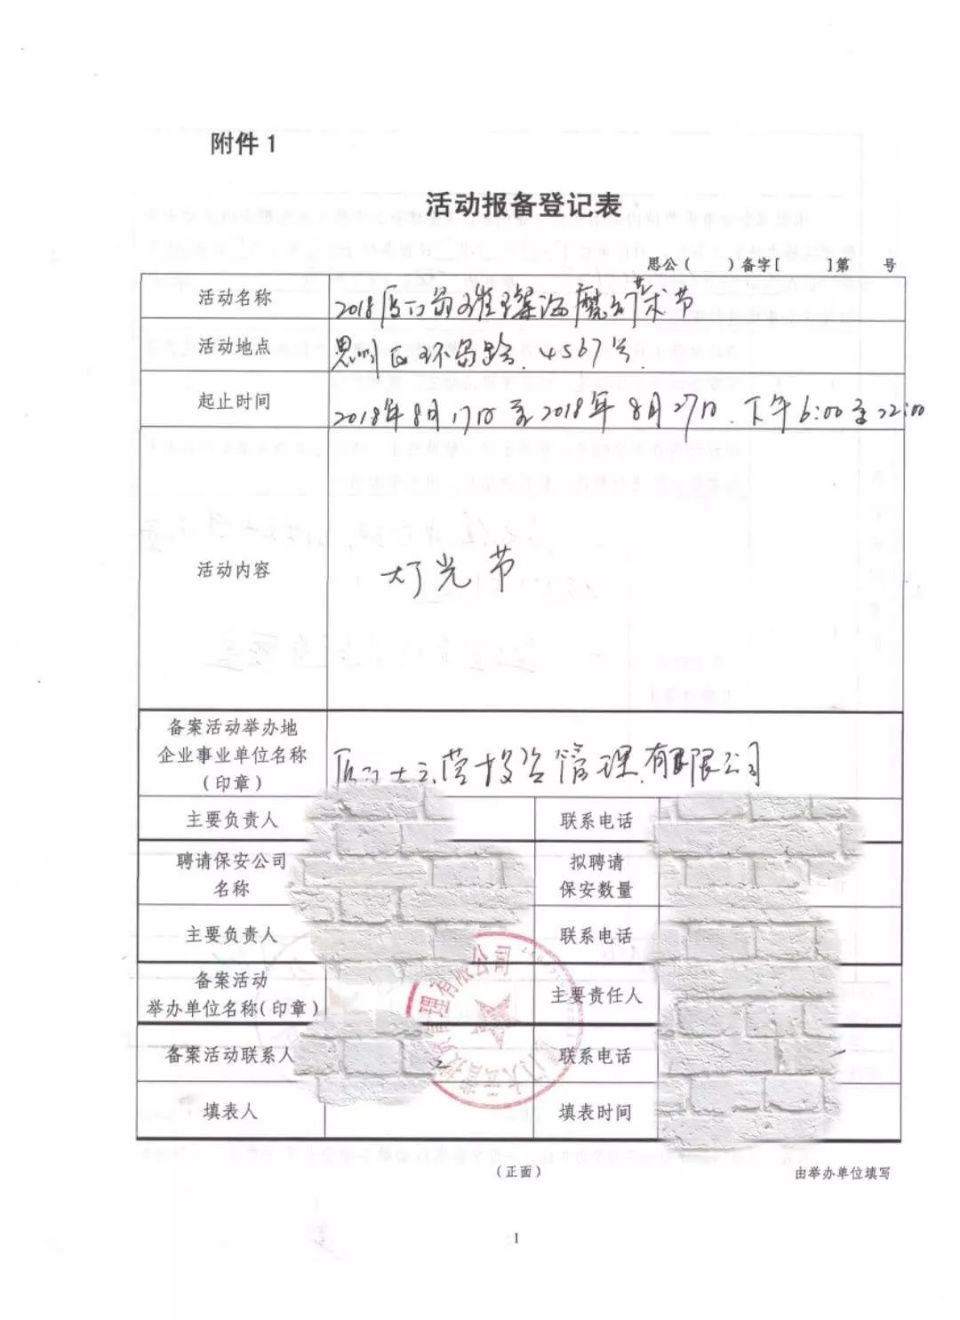 附件 1
活动报备登记表
思公 (      ) 备字 [      ] 第      号
活动名称 2018厦门岛璀璨海魔幻艺术节
活动地点 思明区环岛路 4567号
起止时间 2018年8月17日至2018年8月27日.下午6:00至22:00
活动内容 灯光节
备案活动举办地
企业事业单位名称
(印章)
厦门大云营投资管理有限公司
主要负责人 联系电话
聘请保安公司
名称
拟聘请
保安数量
主要负责人 联系电话
备案活动
举办单位名称(印章)
主要责任人
备案活动联系人 联系电话
填表人 填表时间
(正面) 由举办单位填写
1